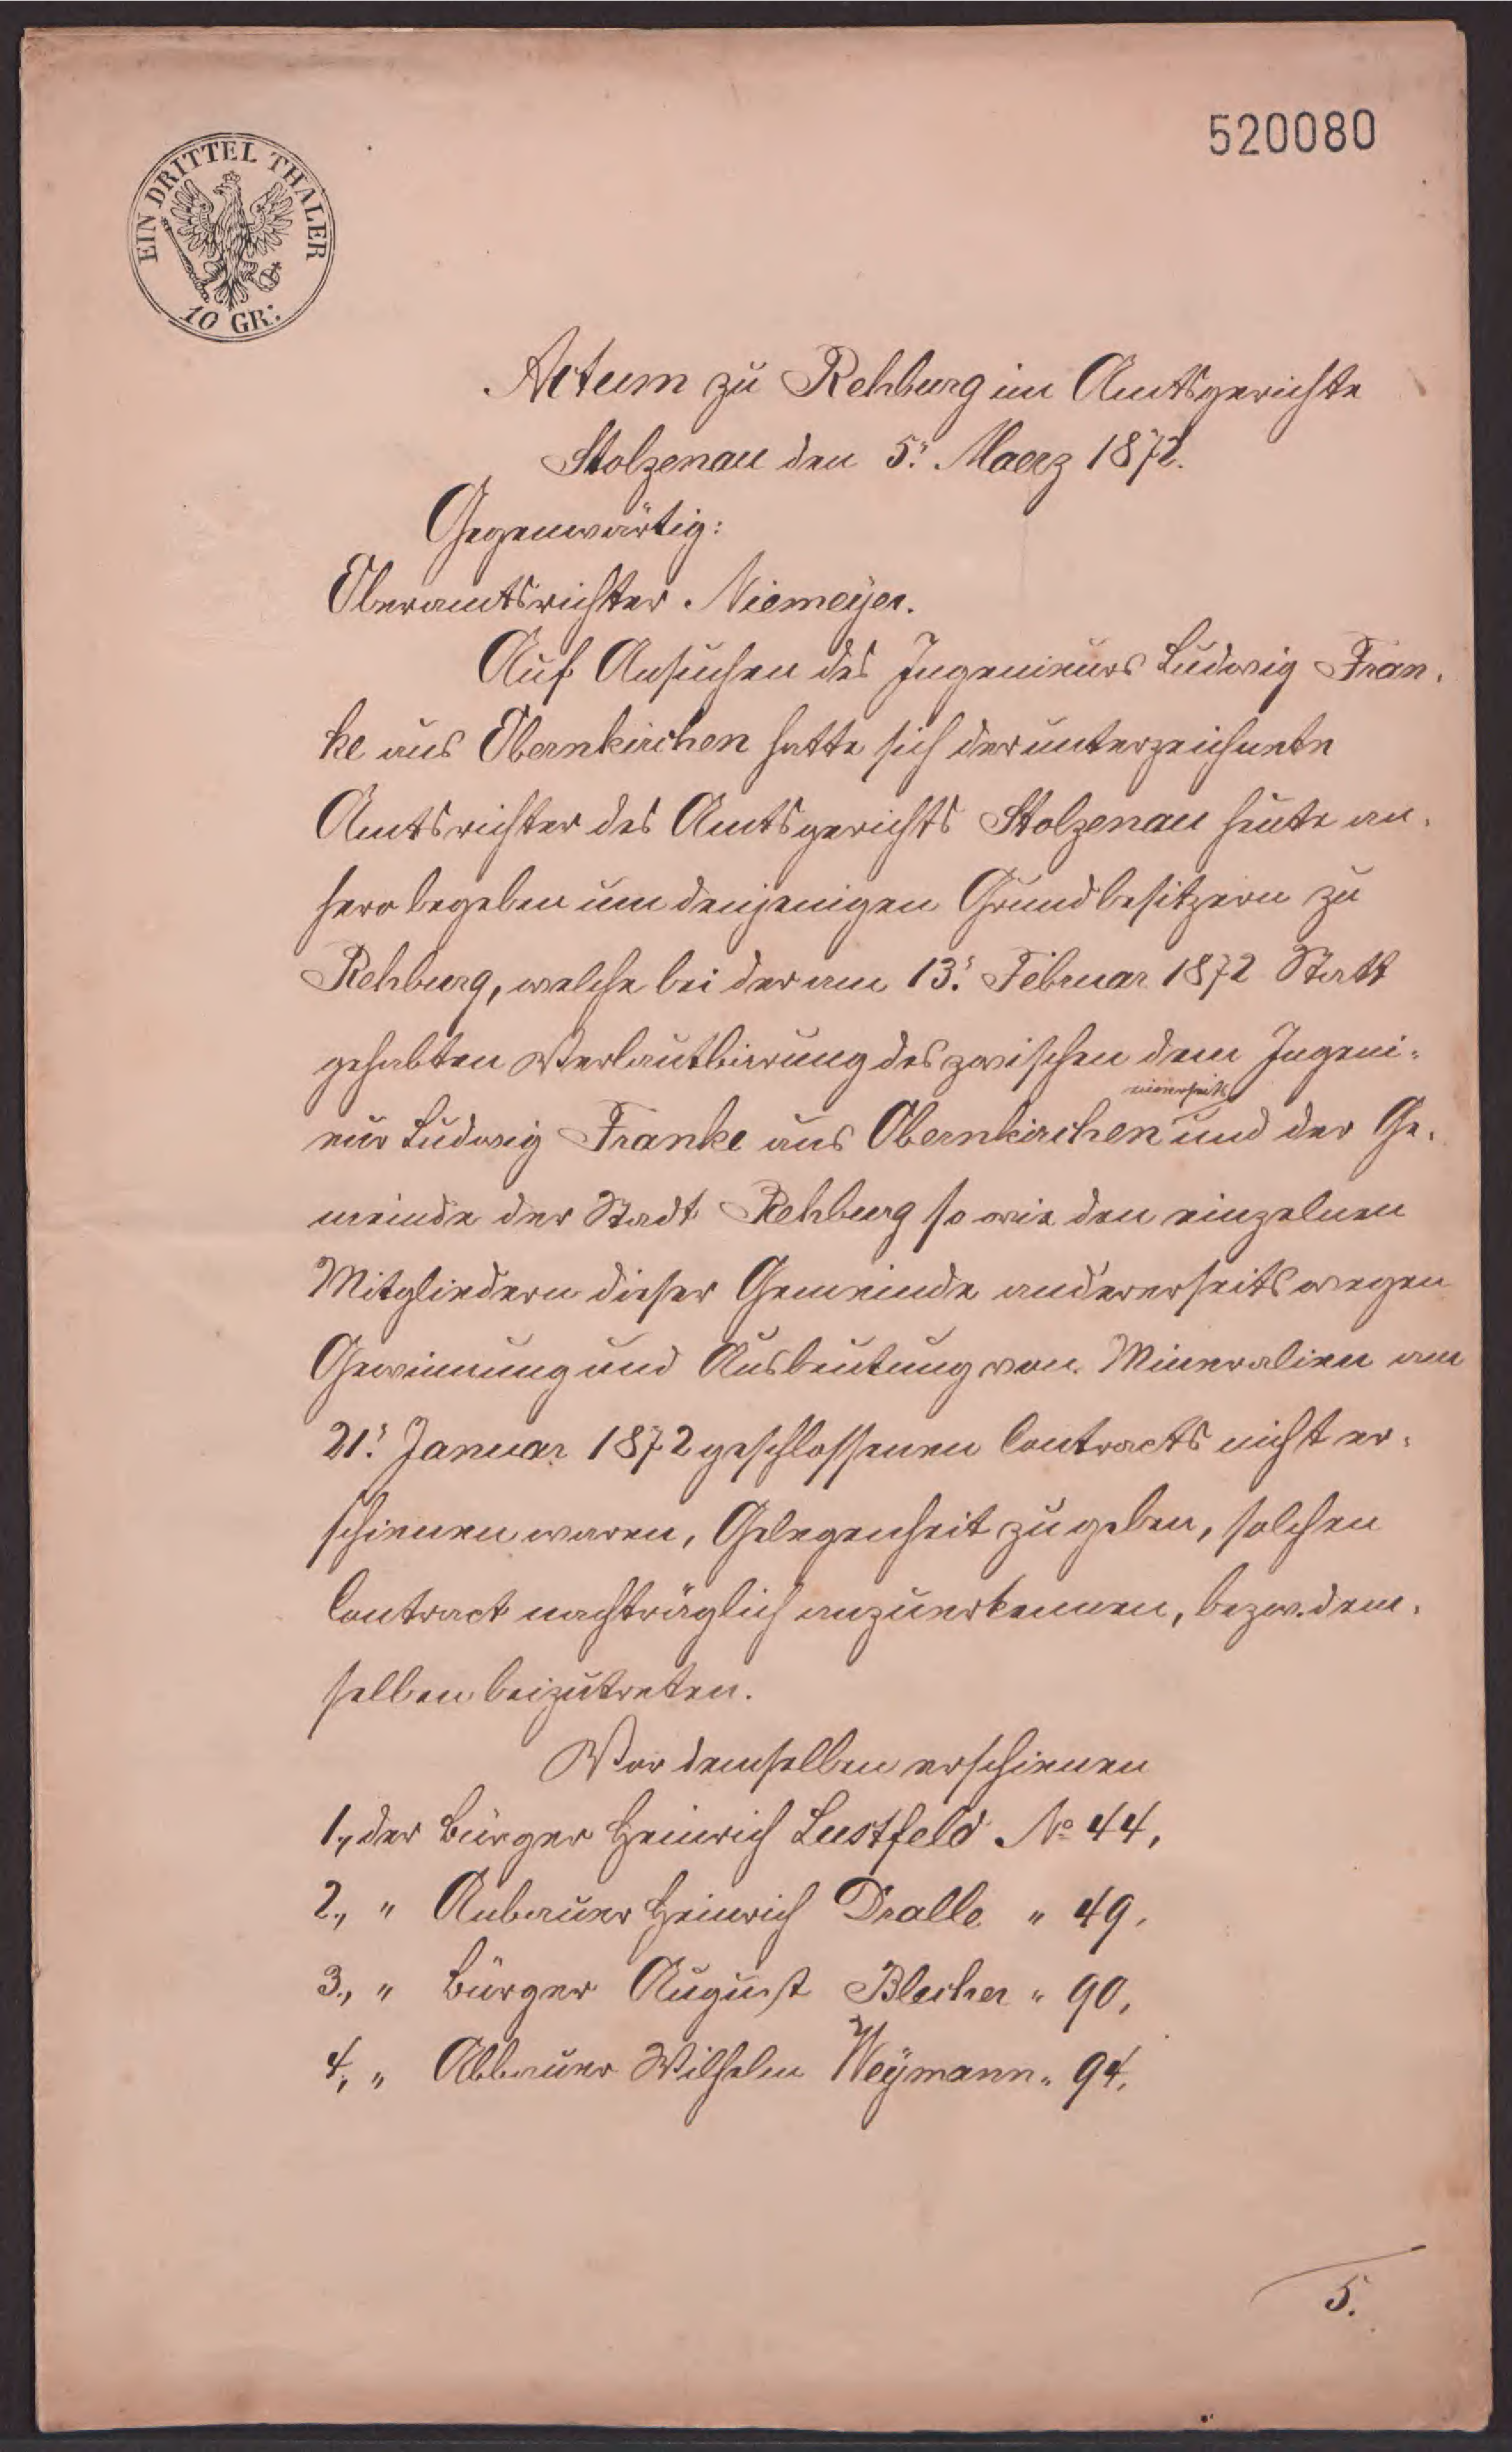 520080
EIN DRITTEL THALER
10 GR:
Actum zu Rehburg im Amtsgerichte
Stolzenau den 5. Maerz 1872.
Gegenwärtig:
Oberamtsrichter Niemeÿer.
Auf Ansuchen des Ingenieurs Ludwig Fran-
ke aus Obernkirchen hatte sich der unterzeichnete
Amtsrichter des Amtsgerichts Stolzenau heute an-
hero begeben um denjenigen Grundbesitzern zu
Rehburg, welche bei der am 13. Februar 1872 Statt
gehabten Verlautbarung des zwischen dem Ingeni-
einerseits
eur Ludwig Franke aus Obernkirchen und der Ge-
meinde der Stadt Rehburg so wie den einzelnen
Mitgliedern dieser Gemeinde andererseits wegen
Gewinnung und Ausbeutung von Mineralien am
21. Januar 1872 geschlossenen Contracts nicht er-
schienen waren, Gelegenheit zu geben, solchen
Contract nachträglich anzuerkennen, bezw. dem-
selben beizutreten.
Vor demselben erschienen
1., der Bürger Heinrich Lustfeld No 44,
2., " Anbauer Heinrich Dralle " 49,
3., " Bürger August Blecher " 90,
4., " Abbauer Wilhelm Weÿmann " 94,
5.